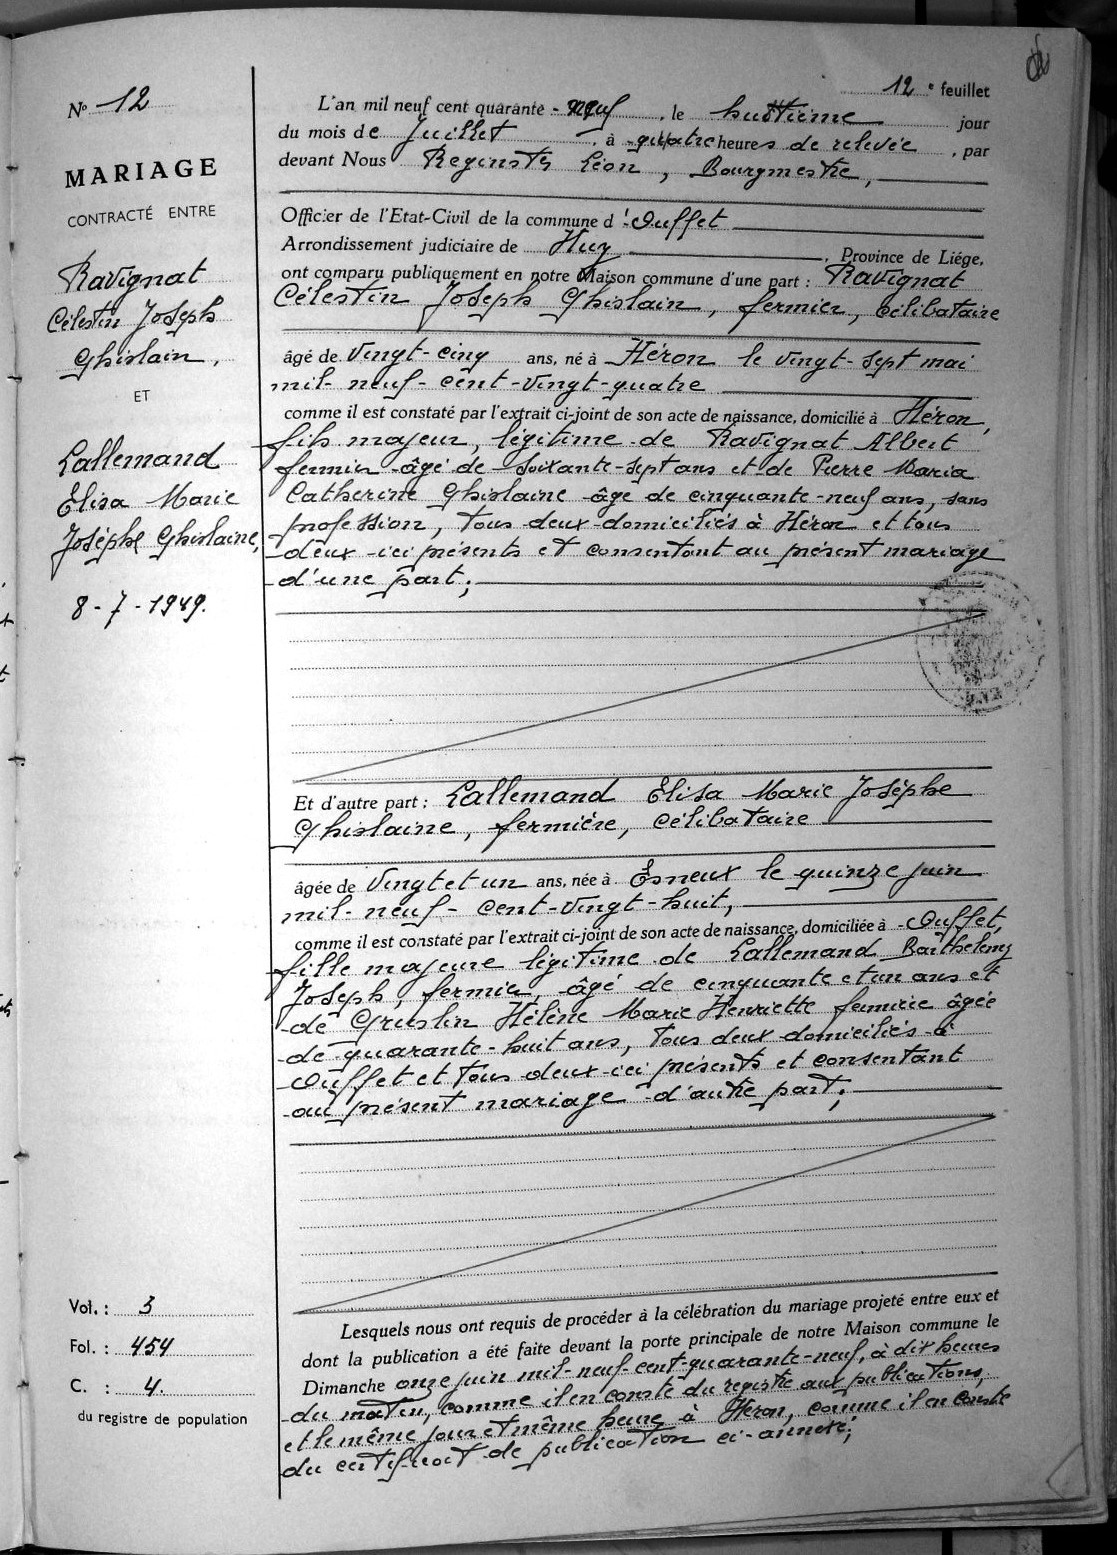 12 e feuillet
Nº 12
MARIAGE
CONTRACTÉ ENTRE
Ravignat
Célestin Joseph
Ghislain,
ET
Lallemand
Elisa Marie
Joséphe Ghislaine,
8-7-1949.
L'an mil neuf cent quarante - neuf, le huitième jour
du mois de Juillet, à quatre heures de relevée, par
devant Nous Reginster Léon, Bourgmestre,
Officier de l'Etat-Civil de la commune d'Ouffet
Arrondissement judiciaire de Huy, Province de Liége,
ont comparu publiquement en notre Maison commune d'une part : Ravignat
Célestin Joseph Ghislain, fermier, célibataire
âgé de vingt-cinq ans, né à Héron le vingt-sept mai
mil-neuf-cent-vingt-quatre
comme il est constaté par l'extrait ci-joint de son acte de naissance, domicilié à Héron,
fils majeur, légitime de Ravignat Albert
fermier âgé de soixante-sept ans et de Pierre Maria
Catherine Ghislaine âgé de cinquante-neuf ans, sans
profession, tous deux domiciliés à Héron et tous
deux ici présents et consentant au présent mariage
d'une part;
Et d'autre part : Lallemand Elisa Marie Joséphe
Ghislaine, fermière, célibataire
âgée de vingt et un ans, née à Esneux le quinze juin
mil-neuf-cent-vingt-huit,
comme il est constaté par l'extrait ci-joint de son acte de naissance, domiciliée à Ouffet,
fille majeure légitime de Lallemand Barthelémy
Joseph, fermier, âgé de cinquante et un ans et
de Gruslin Hélène Marie Henriette fermière âgée
de quarante-huit ans, tous deux domiciliés à
Ouffet et tous deux ici présents et consentant
au présent mariage d'autre part;
Lesquels nous ont requis de procéder à la célébration du mariage projeté entre eux et
dont la publication a été faite devant la porte principale de notre Maison commune le
Dimanche onze juin mil-neuf-cent-quarante-neuf, à dix heures
du matin, comme il en conste du registre aux publications,
et le même jour et même heure à Héron, comme il en conste
du certificat de publication ci-annexé;
Vol. : 3
Fol. : 454
C. : 4.
du registre de population